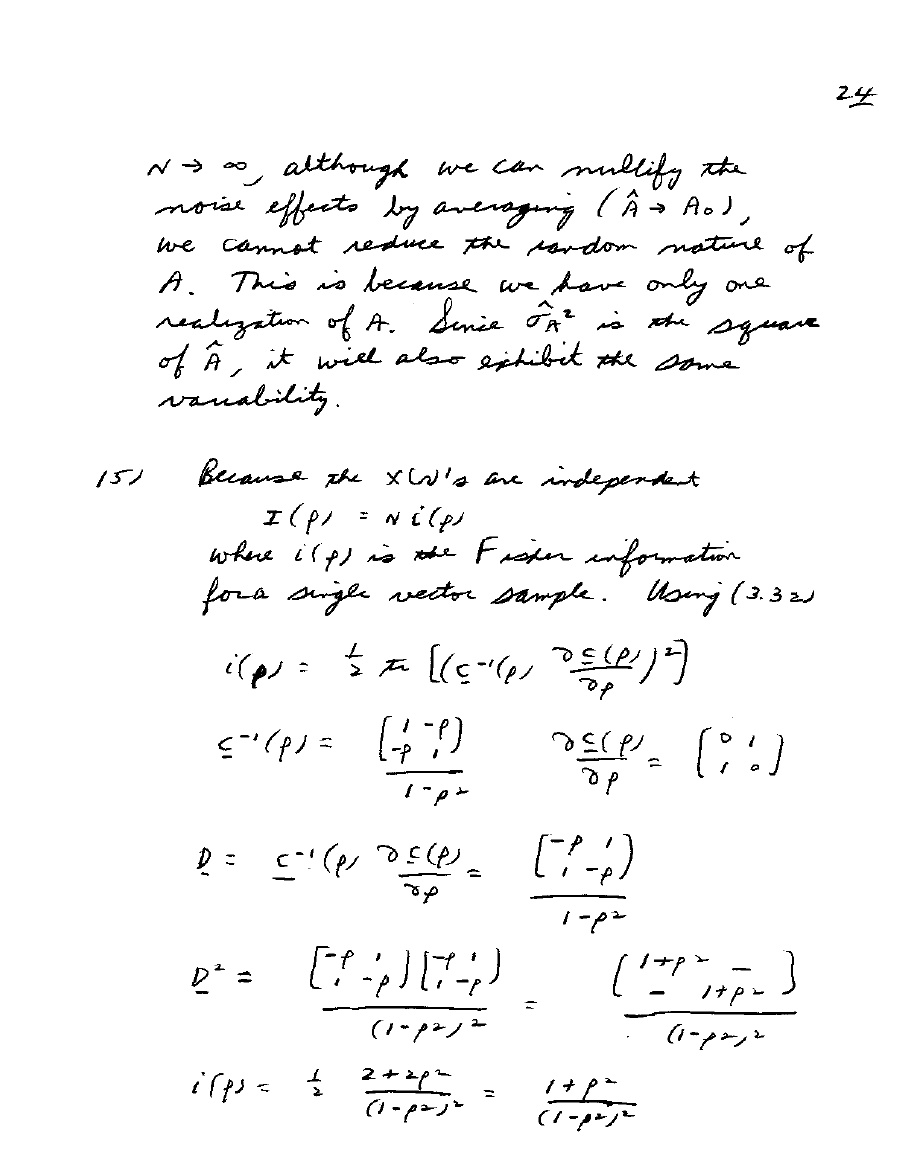 24
N → ∞, although we can nullify the
noise effects by averaging (Â → A₀),
we cannot reduce the random nature of
A. This is because we have only one
realization of A. Since σ̂_A² is the square
of Â, it will also exhibit the same
variability.
15) Because the x(n)'s are independent
I(ρ) = N i(ρ)
where i(ρ) is the Fisher information
for a single vector sample. Using (3.32)
i(ρ) = 1/2 tr [(C⁻¹(ρ) ∂C(ρ)/∂ρ)²]
C⁻¹(ρ) = [1 -ρ; -ρ 1] / (1-ρ²)   ∂C(ρ)/∂ρ = [0 1; 1 0]
D = C⁻¹(ρ) ∂C(ρ)/∂ρ = [-ρ 1; 1 -ρ] / (1-ρ²)
D² = [-ρ 1; 1 -ρ][-ρ 1; 1 -ρ] / (1-ρ²)² = [1+ρ² –; – 1+ρ²] / (1-ρ²)²
i(ρ) = 1/2 (2+2ρ²)/(1-ρ²)² = (1+ρ²)/(1-ρ²)²